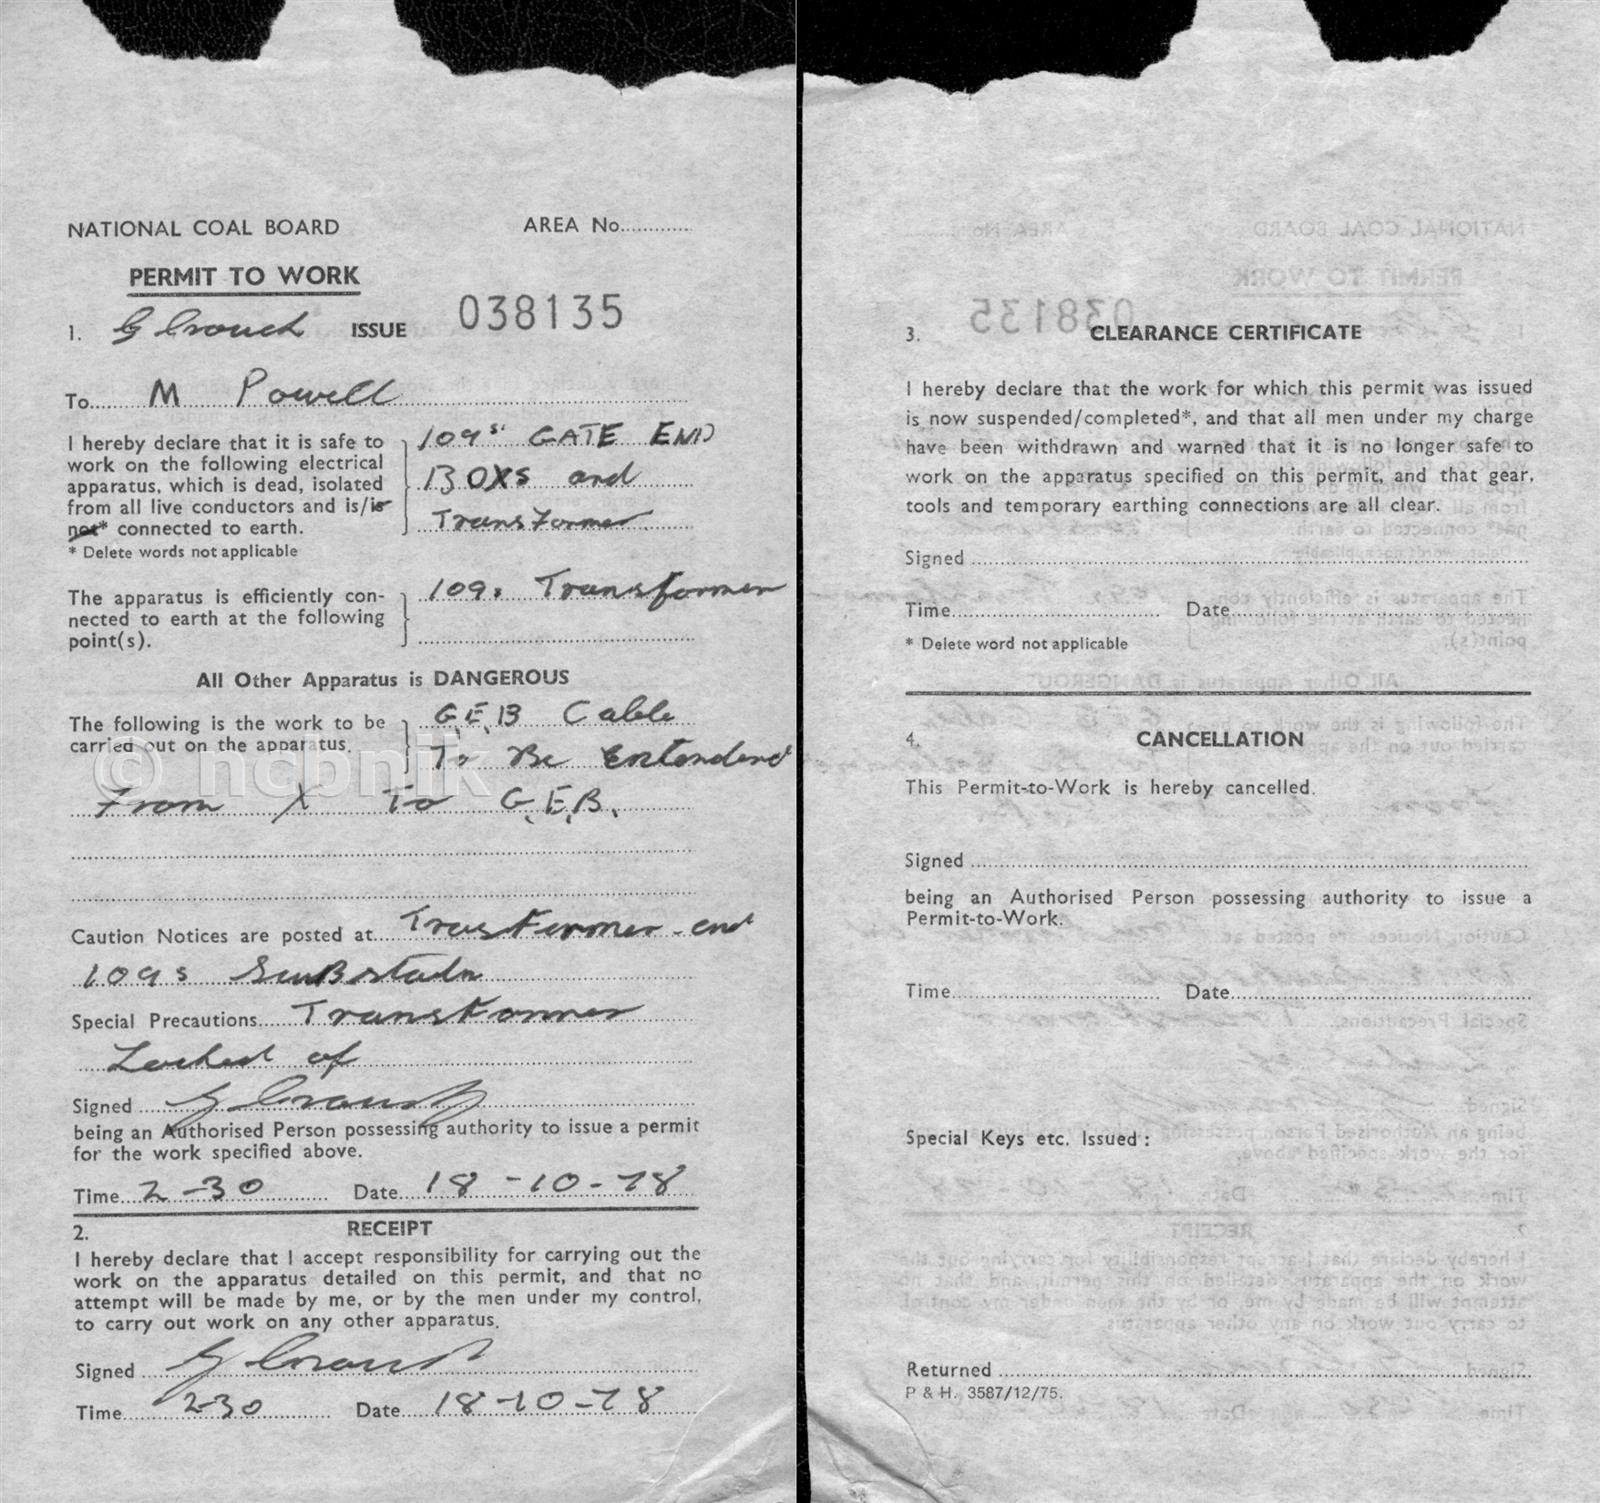 NATIONAL COAL BOARD AREA No............
PERMIT TO WORK
1. G Crouch ISSUE 038135
To M Powell
I hereby declare that it is safe to
work on the following electrical
apparatus, which is dead, isolated
from all live conductors and is/is
not* connected to earth.
* Delete words not applicable
109s' GATE END
BOXS and
Transformer
The apparatus is efficiently con-
nected to earth at the following
point(s).
109s Transformer
All Other Apparatus is DANGEROUS
The following is the work to be
carried out on the apparatus.
G.E.B Cable
To Be Extended
From X To G.E.B.
© ncbnik
Caution Notices are posted at Transformer and
109s
Special Precautions Transformer
Locked of
Signed G Crouch
being an Authorised Person possessing authority to issue a permit
for the work specified above.
Time 2-30 Date 18-10-78
2. RECEIPT
I hereby declare that I accept responsibility for carrying out the
work on the apparatus detailed on this permit, and that no
attempt will be made by me, or by the men under my control,
to carry out work on any other apparatus.
Signed G Crouch
Time 2-30 Date 18-10-78
3. CLEARANCE CERTIFICATE
I hereby declare that the work for which this permit was issued
is now suspended/completed*, and that all men under my charge
have been withdrawn and warned that it is no longer safe to
work on the apparatus specified on this permit, and that gear,
tools and temporary earthing connections are all clear.
Signed
Time Date
* Delete word not applicable
4. CANCELLATION
This Permit-to-Work is hereby cancelled.
Signed
being an Authorised Person possessing authority to issue a
Permit-to-Work.
Time Date
Special Keys etc. Issued :
Returned
P & H. 3587/12/75.